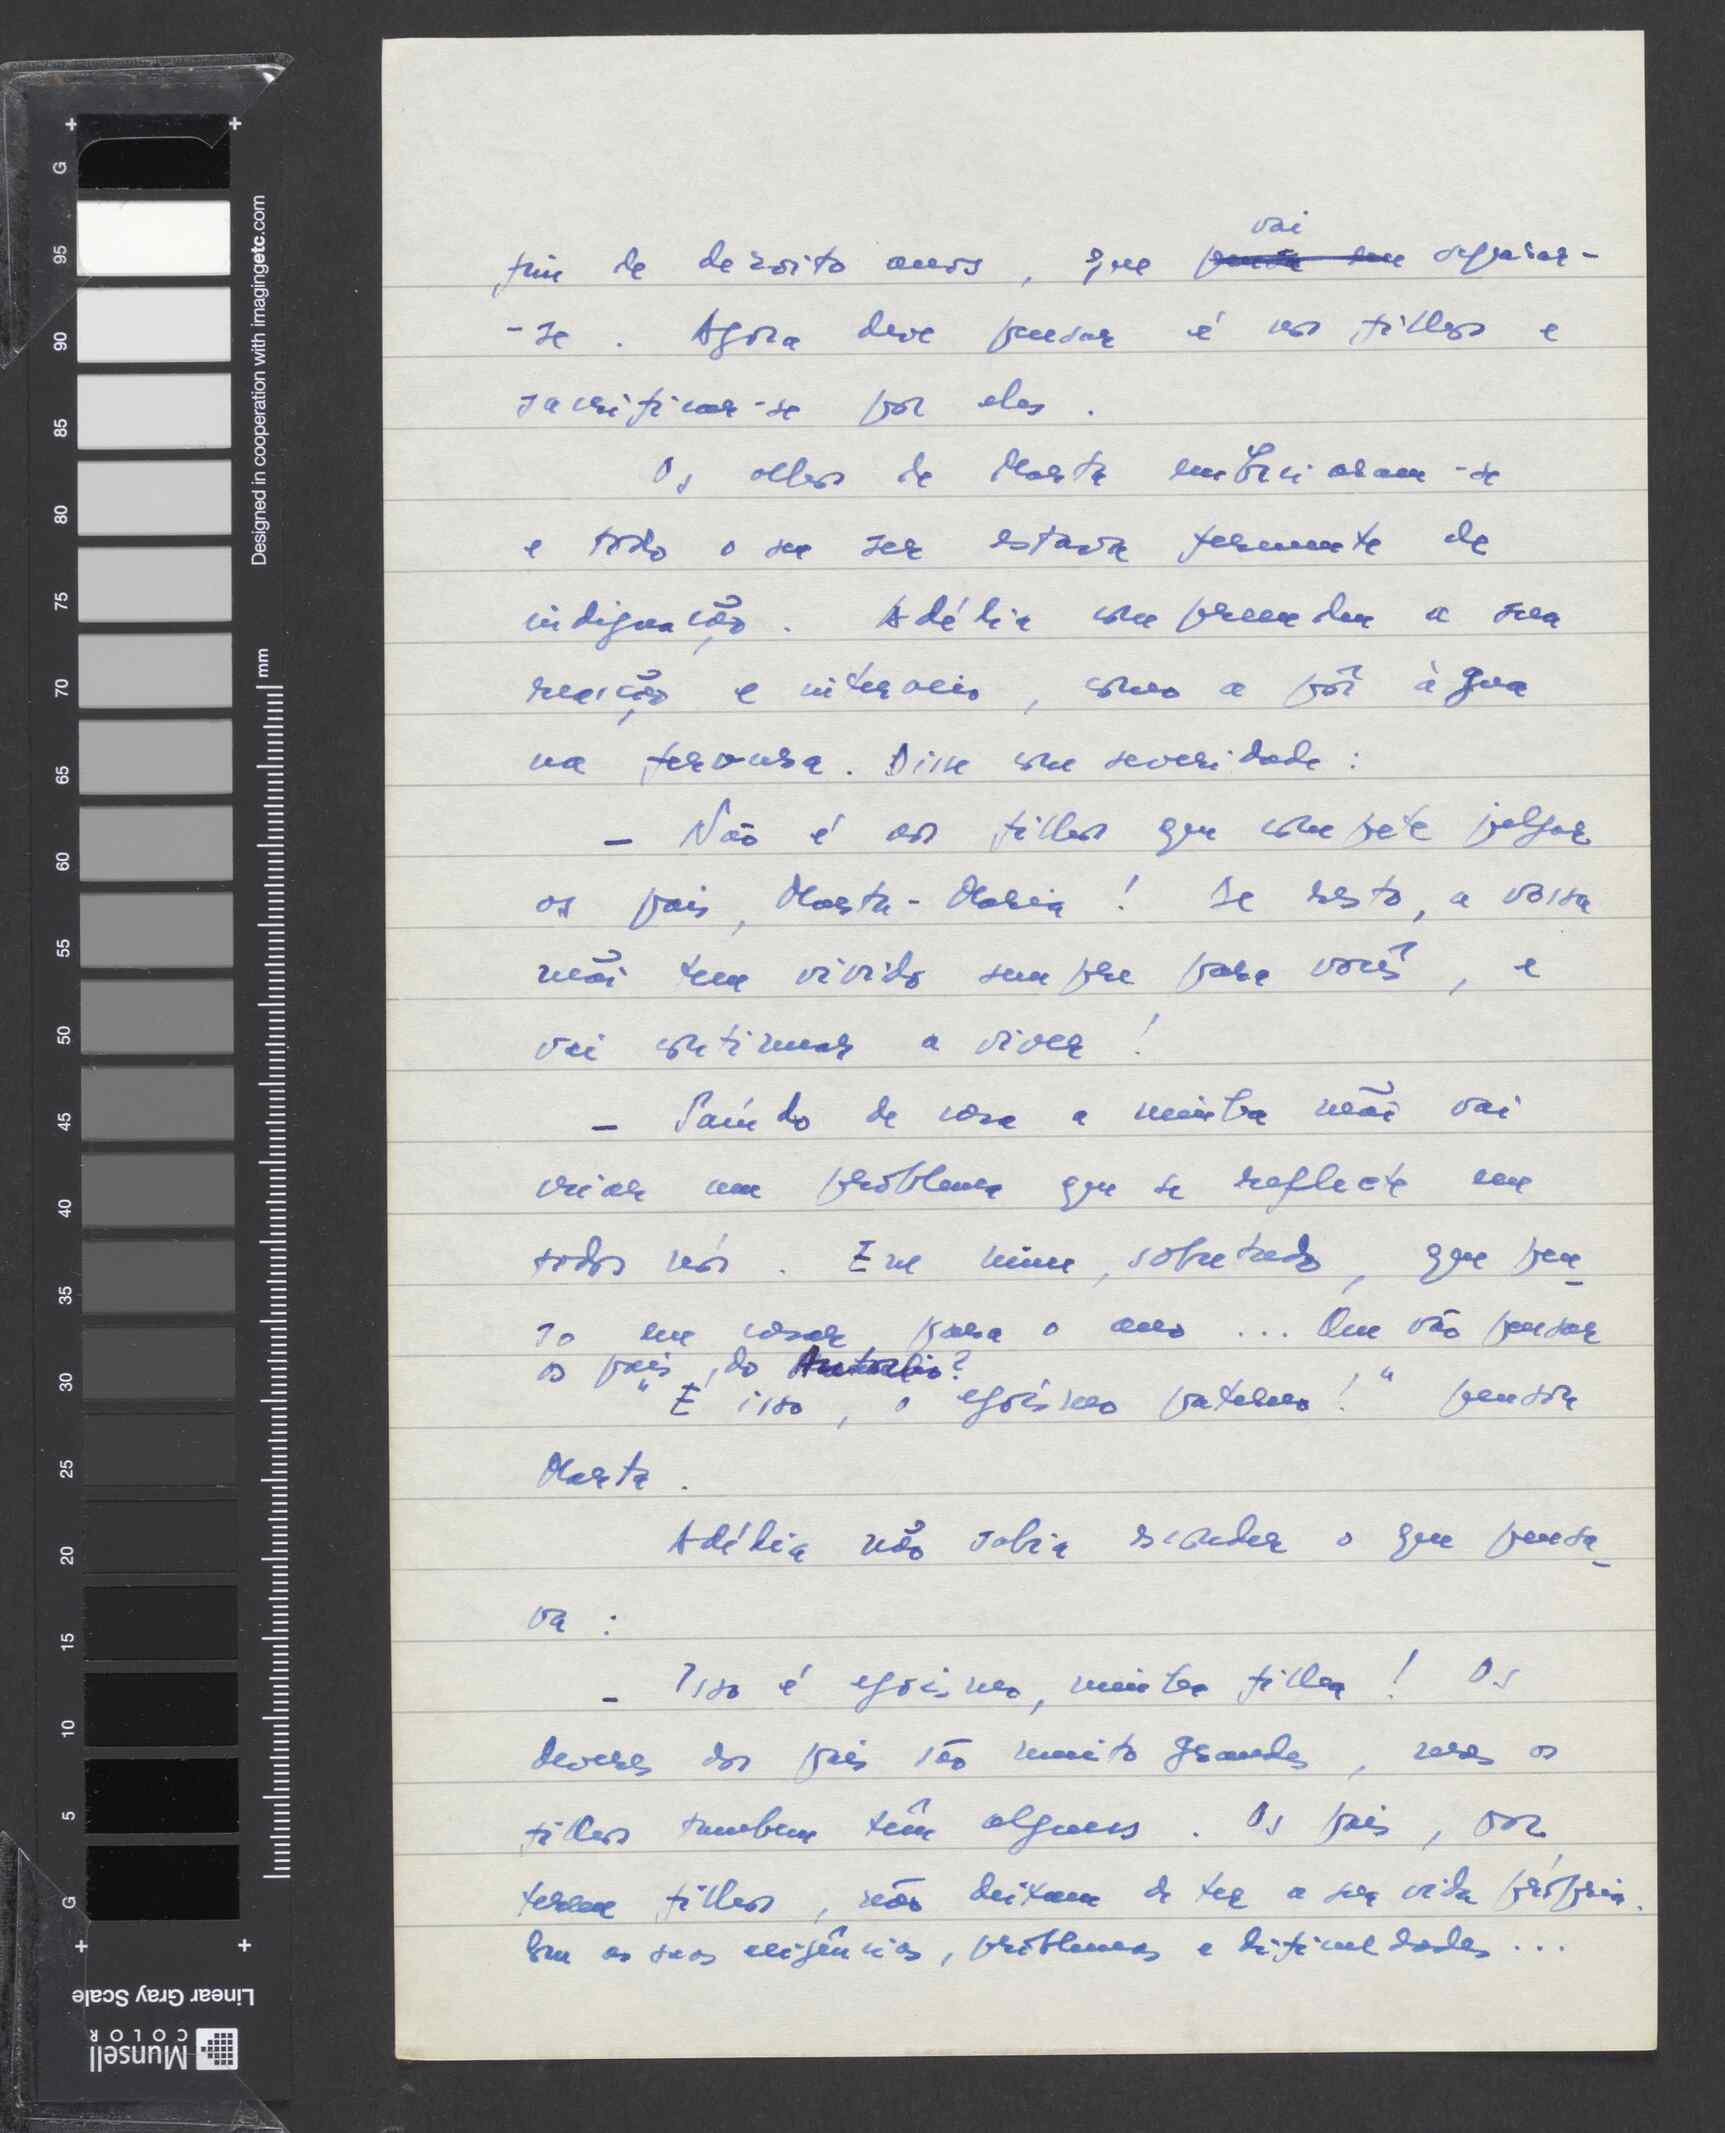 fim de dezoito anos, que vai ~~pensa em~~ separar-
-se. Agora deve pensar é nos filhos e
sacrificar-se por eles.
Os olhos de Marta embaciaram-se
e todo o seu ser estava fremente de
indignação. Adélia compreendeu a sua
reacção e interveio, como a pôr àgua
na fervura. Disse com severidade:
– Não é aos filhos que compete julgar
os pais, Marta-Maria! De resto, a vossa
mãi tem vivido sempre para vocês, e
vai continuar a viver!
– Saíndo de casa a minha mãi vai
criar um problema que se reflecte em
todos nós. Em mim, sobretudo, que pen-
so em casar para o ano... Que vão pensar
os pais do ?
"É isso, o egoísmo paterno!" pensou
Marta.
Adélia não sabia esconder o que pensa-
va:
– Isso é egoismo, minha filha! Os
deveres dos pais são muito grandes, mas os
filhos tambem têm alguns. Os pais, por
terem filhos, não deixam de ter a sua vida própria.
Com as suas exigências, problemas e dificuldades...
G
95
90
85
80
75
70
65
60
55
50
45
40
35
30
25
20
15
10
5
G
Designed in cooperation with imagingetc.com
mm
Linear Gray Scale
Munsell
COLOR